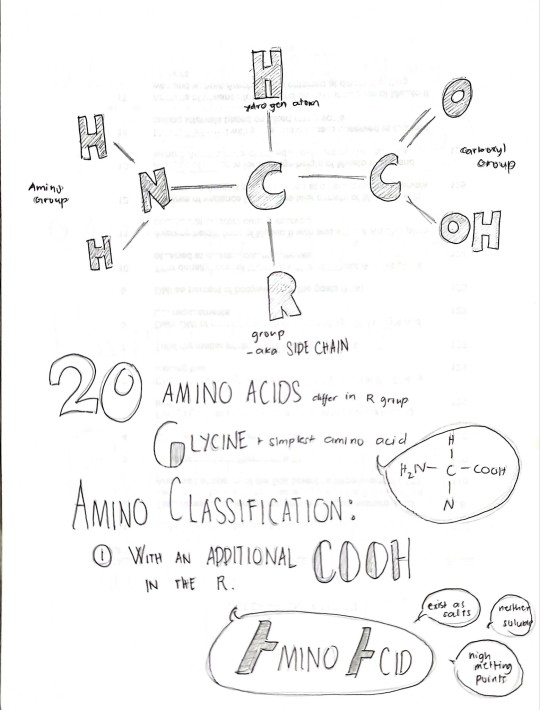 H
ydrogen atom
O
H
Carboxyl
Group
Amino
Group
N
C
C
H
OH
R
group
-aka SIDE CHAIN
20 AMINO ACIDS differ in R group
GLYCINE + simplest amino acid
H
H₂N- C -COOH
N
AMINO CLASSIFICATION:
① WITH AN ADDITIONAL COOH
IN THE R.
AMINO ACID
exist as
salts
neither
soluble
high
melting
points